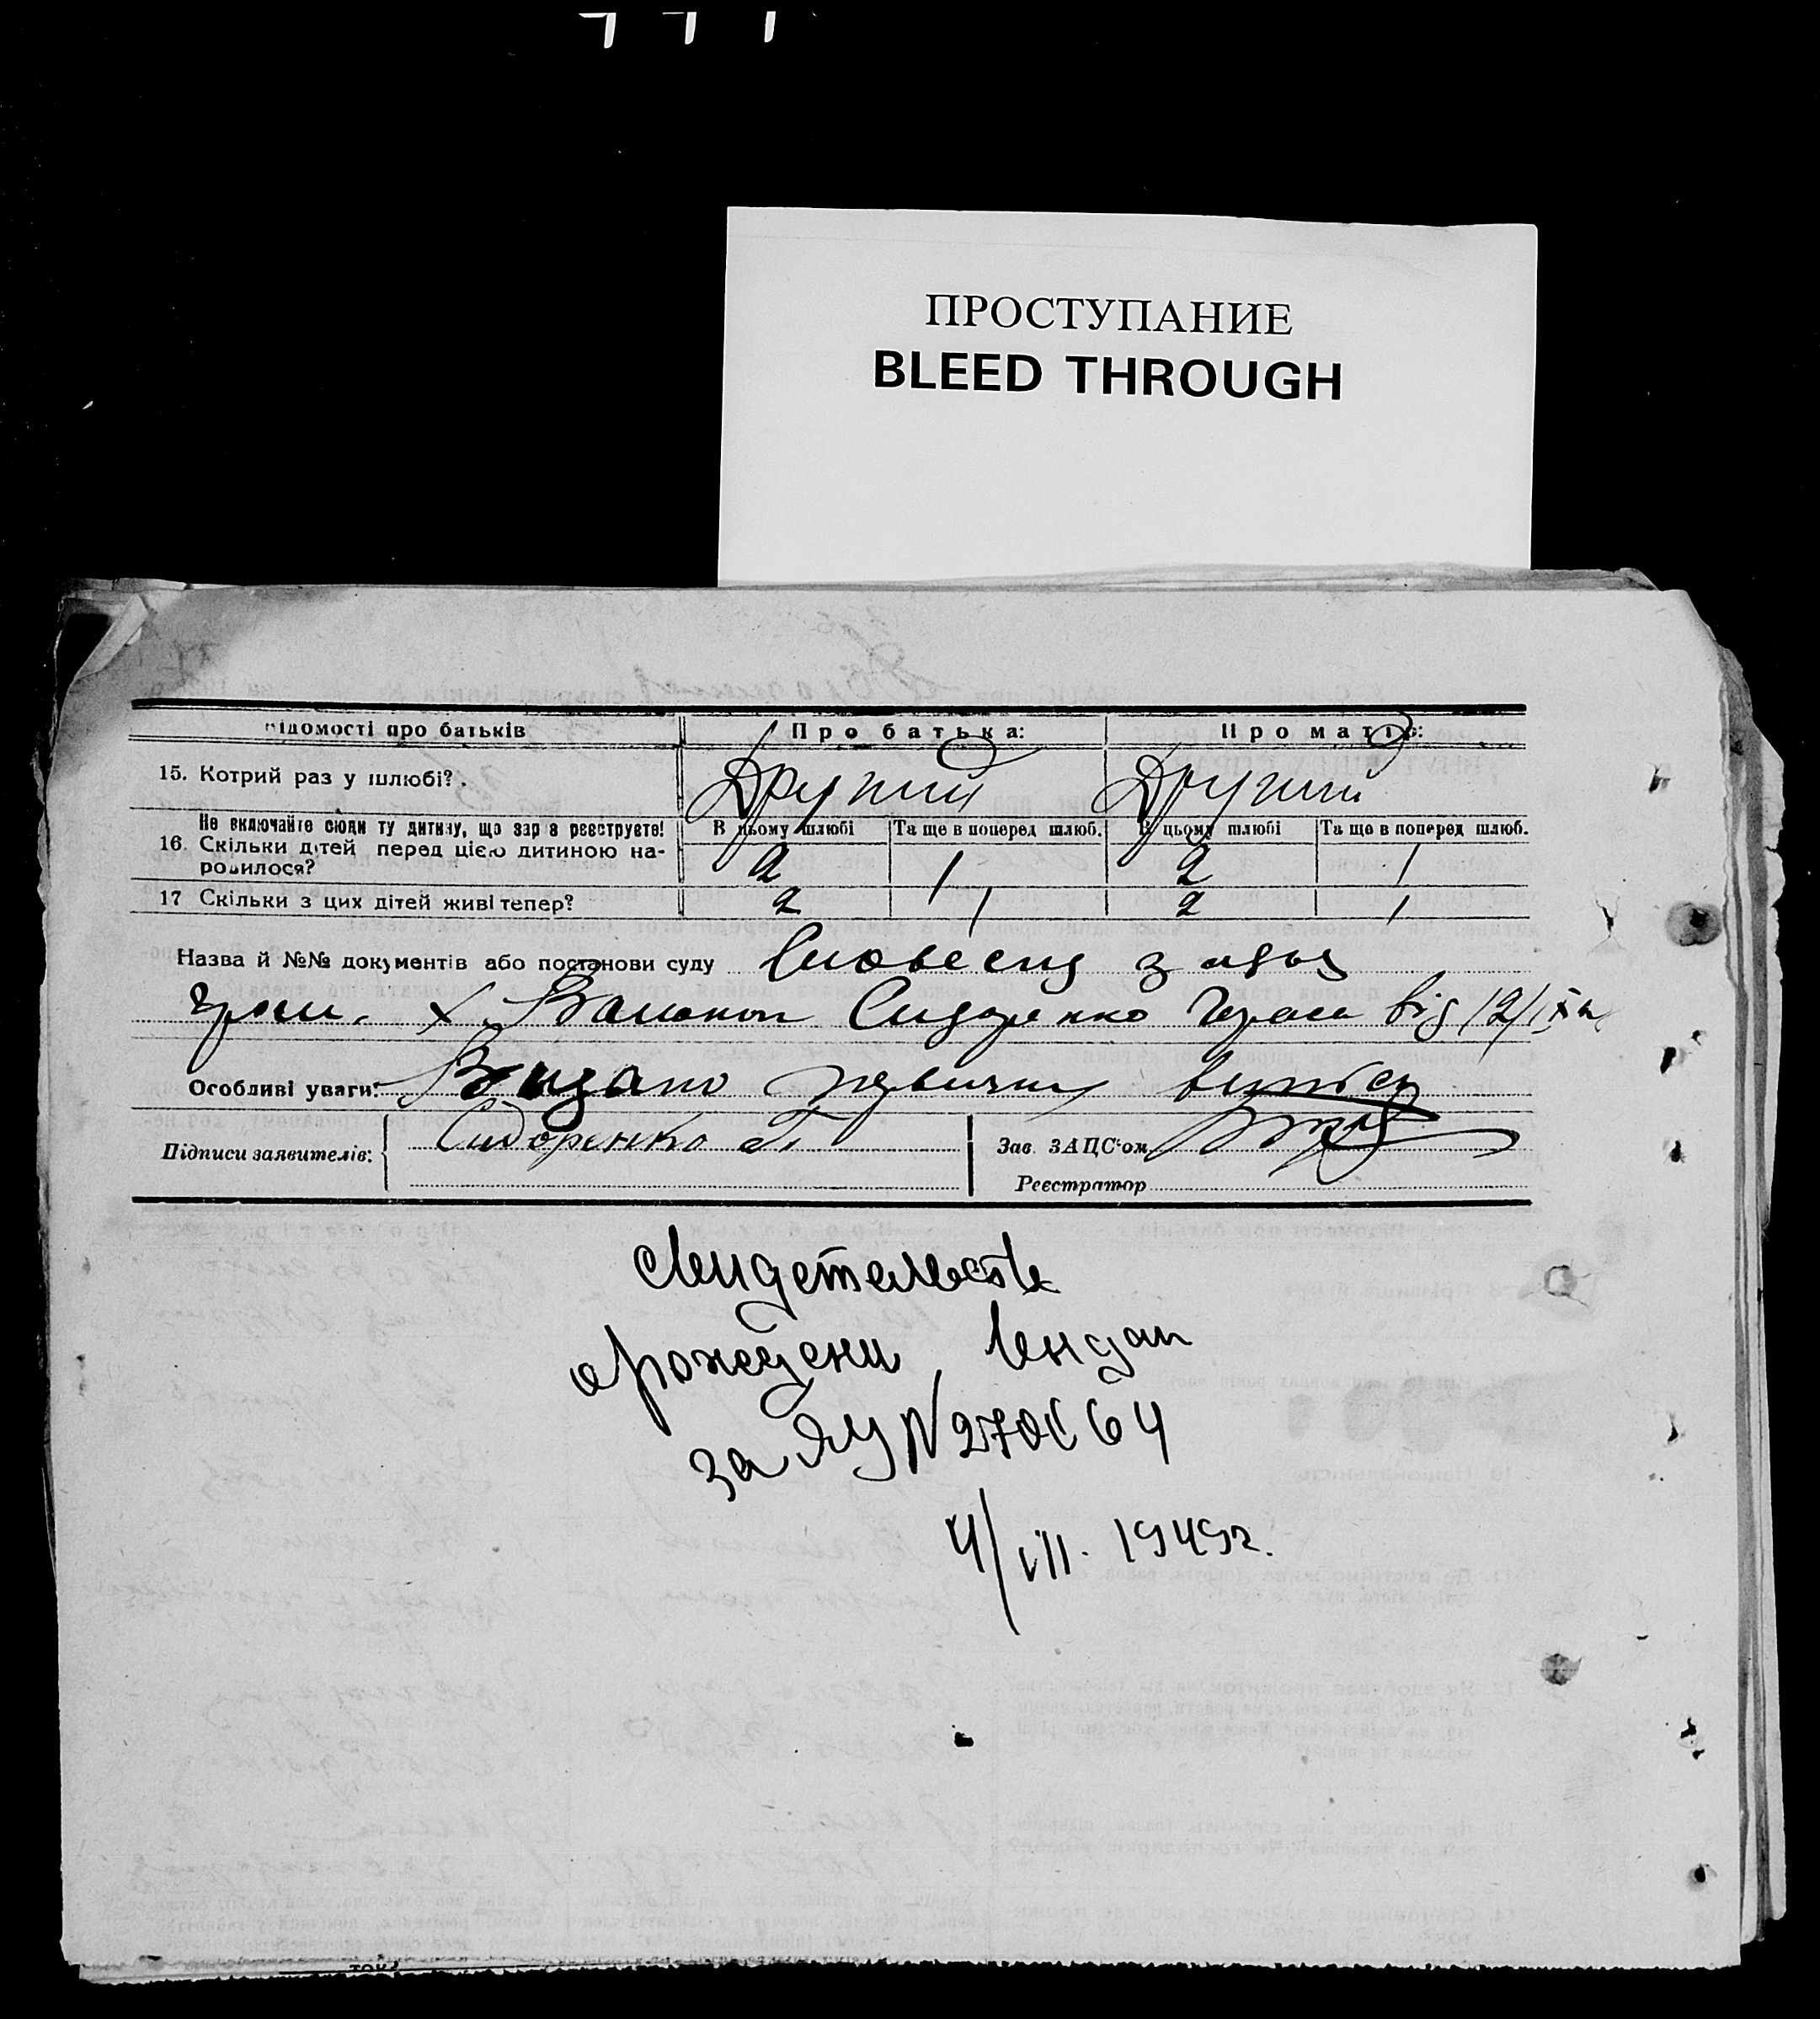 ПРОСТУПАНИЕ
BLEED THROUGH
відомості про батьків
Про батька:
Про матір:
15. Котрий раз у шлюбі?
Другий
Другий
Не включайте сюди ту дитину, що зараз реєструєте!
16. Скільки дітей перед цією дитиною на-
родилося?
В цьому шлюбі
Та ще в поперед шлюб.
В цьому шлюбі
Та ще в поперед шлюб.
2
/
2
/
17 Скільки з цих дітей живі тепер?
2
/
2
/
Назва й №№ документів або постанови суду Словесну заяву
гром. х. Сидоренко від 12/IX
Особливі уваги: Видано первичну виписку
Підписи заявителів: Сидоренко
Зав. ЗАЦС'ом
Реєстратор
Свидетельств
о рождени видан
за ЯУ N
4/VII. 1949г.